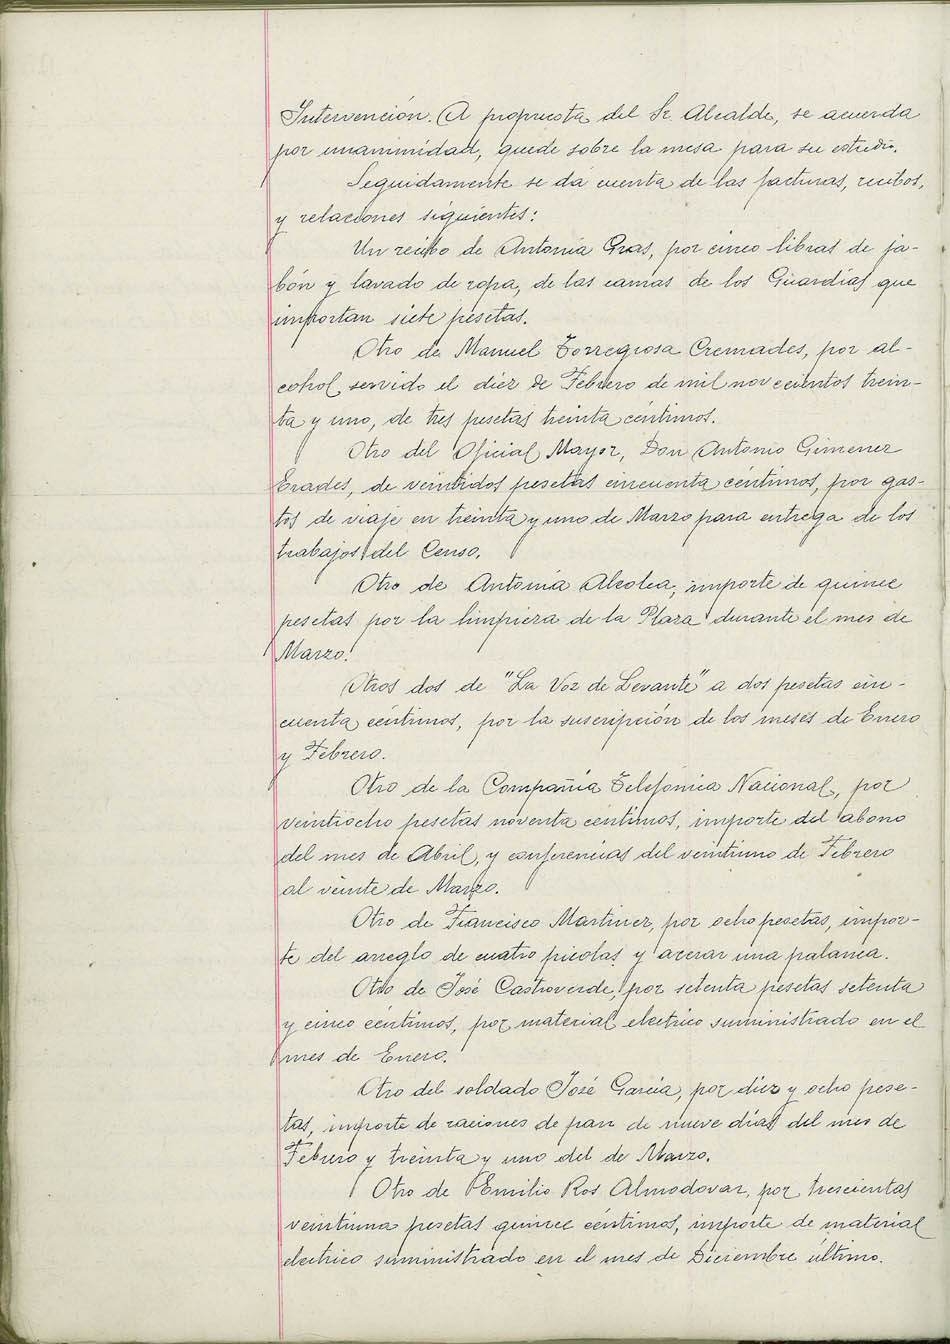 Intervención. A propuesta del Sr. Alcalde, se acuerda
por unanimidad, quede sobre la mesa para su estudio.
Seguidamente se da cuenta de las facturas, recibos,
y relaciones siguientes:
Un recibo de Antonia Gras, por cinco libras de ja-
bón y lavado de ropa, de las camas de los Guardias que
importan siete pesetas.
Otro de Manuel Torregrosa Cremades, por al-
cohol servido el diez de Febrero de mil novecientos trein-
ta y uno, de tres pesetas treinta céntimos.
Otro del Oficial Mayor, Don Antonio Gimenez
Erades, de veintidos pesetas cincuenta céntimos, por gas-
tos de viaje en treinta y uno de Marzo para entrega de los
trabajos del Censo.
Otro de Antonia Alcolea, importe de quince
pesetas por la limpieza de la Plaza durante el mes de
Marzo.
Otros dos de "La Voz de Levante" a dos pesetas cin-
cuenta céntimos, por la suscripción de los meses de Enero
y Febrero.
Otro de la Compañia Telefonica Nacional, por
veintiocho pesetas noventa céntimos, importe del abono
del mes de Abril, y conferencias del veintiuno de Febrero
al veinte de Marzo.
Otro de Francisco Martinez, por ocho pesetas, impor-
te del arreglo de cuatro picolas y acerar una palanca.
Otro de José Castroverde, por setenta pesetas setenta
y cinco céntimos, por material electrico suministrado en el
mes de Enero.
Otro del soldado José Garcia, por diez y ocho pese-
tas, importe de raciones de pan de nueve dias del mes de
Febrero y treinta y uno del de Marzo.
Otro de Emilio Ros Almodovar, por trescientas
veintiuna pesetas quince céntimos, importe de material
electrico suministrado en el mes de Diciembre último.